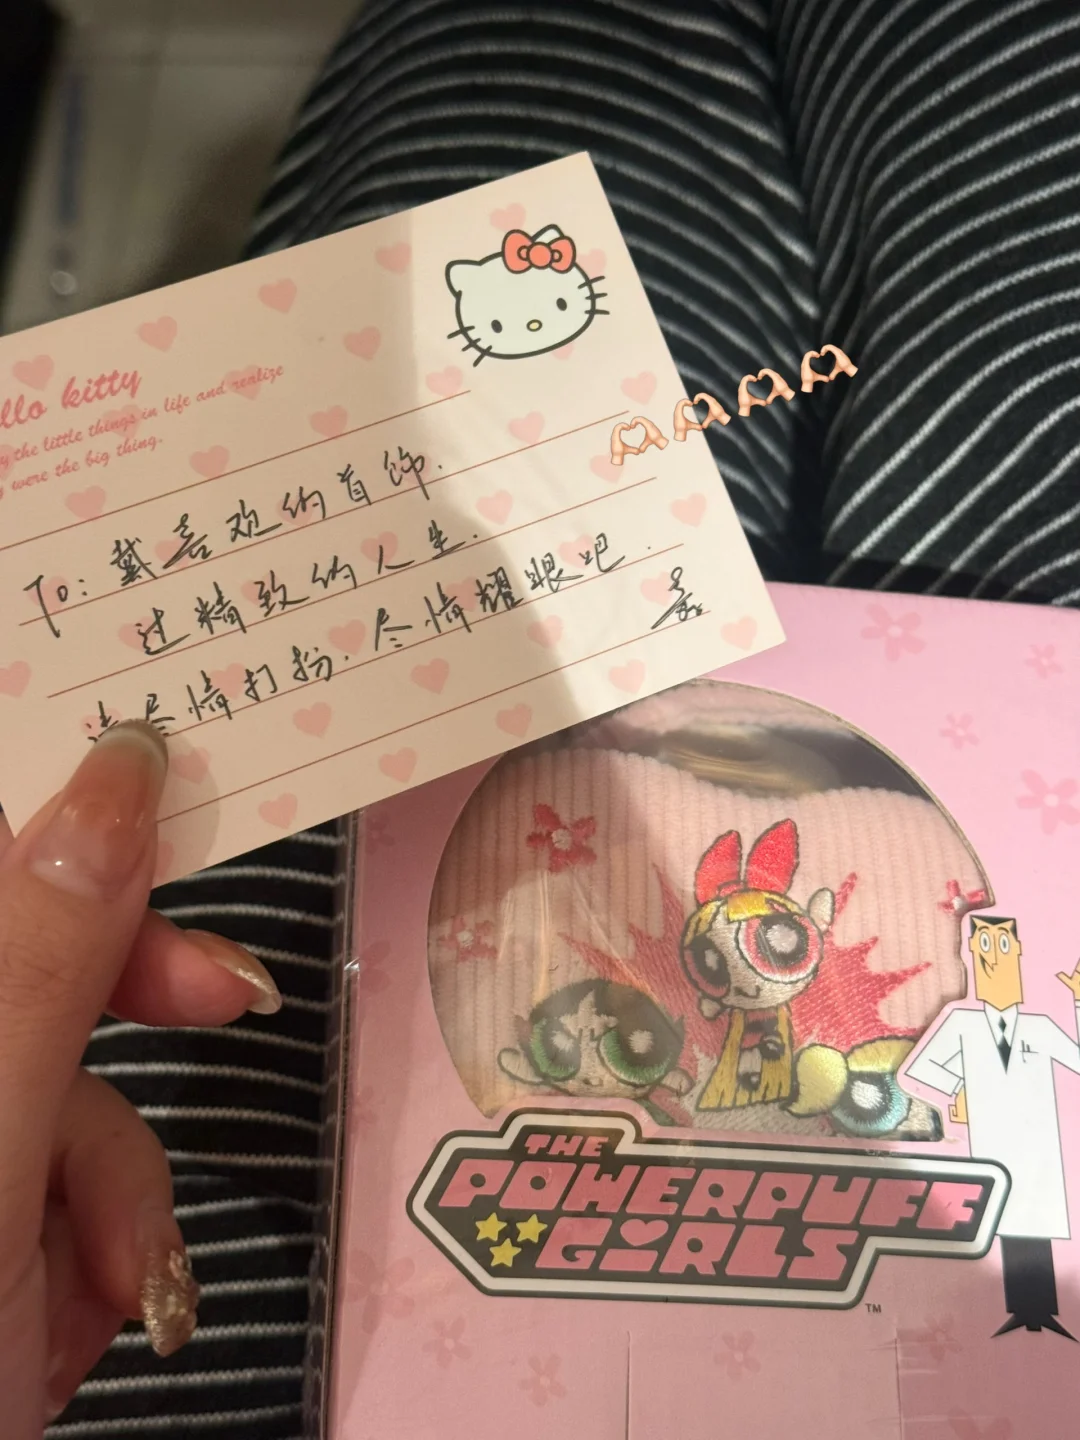 llo kitty
y the little things in life and realize
y were the big thing.
To: 戴喜欢的首饰.
过精致的人生.
请尽情打扮.尽情耀眼吧.
THE
POWERPUFF
GIRLS
TM